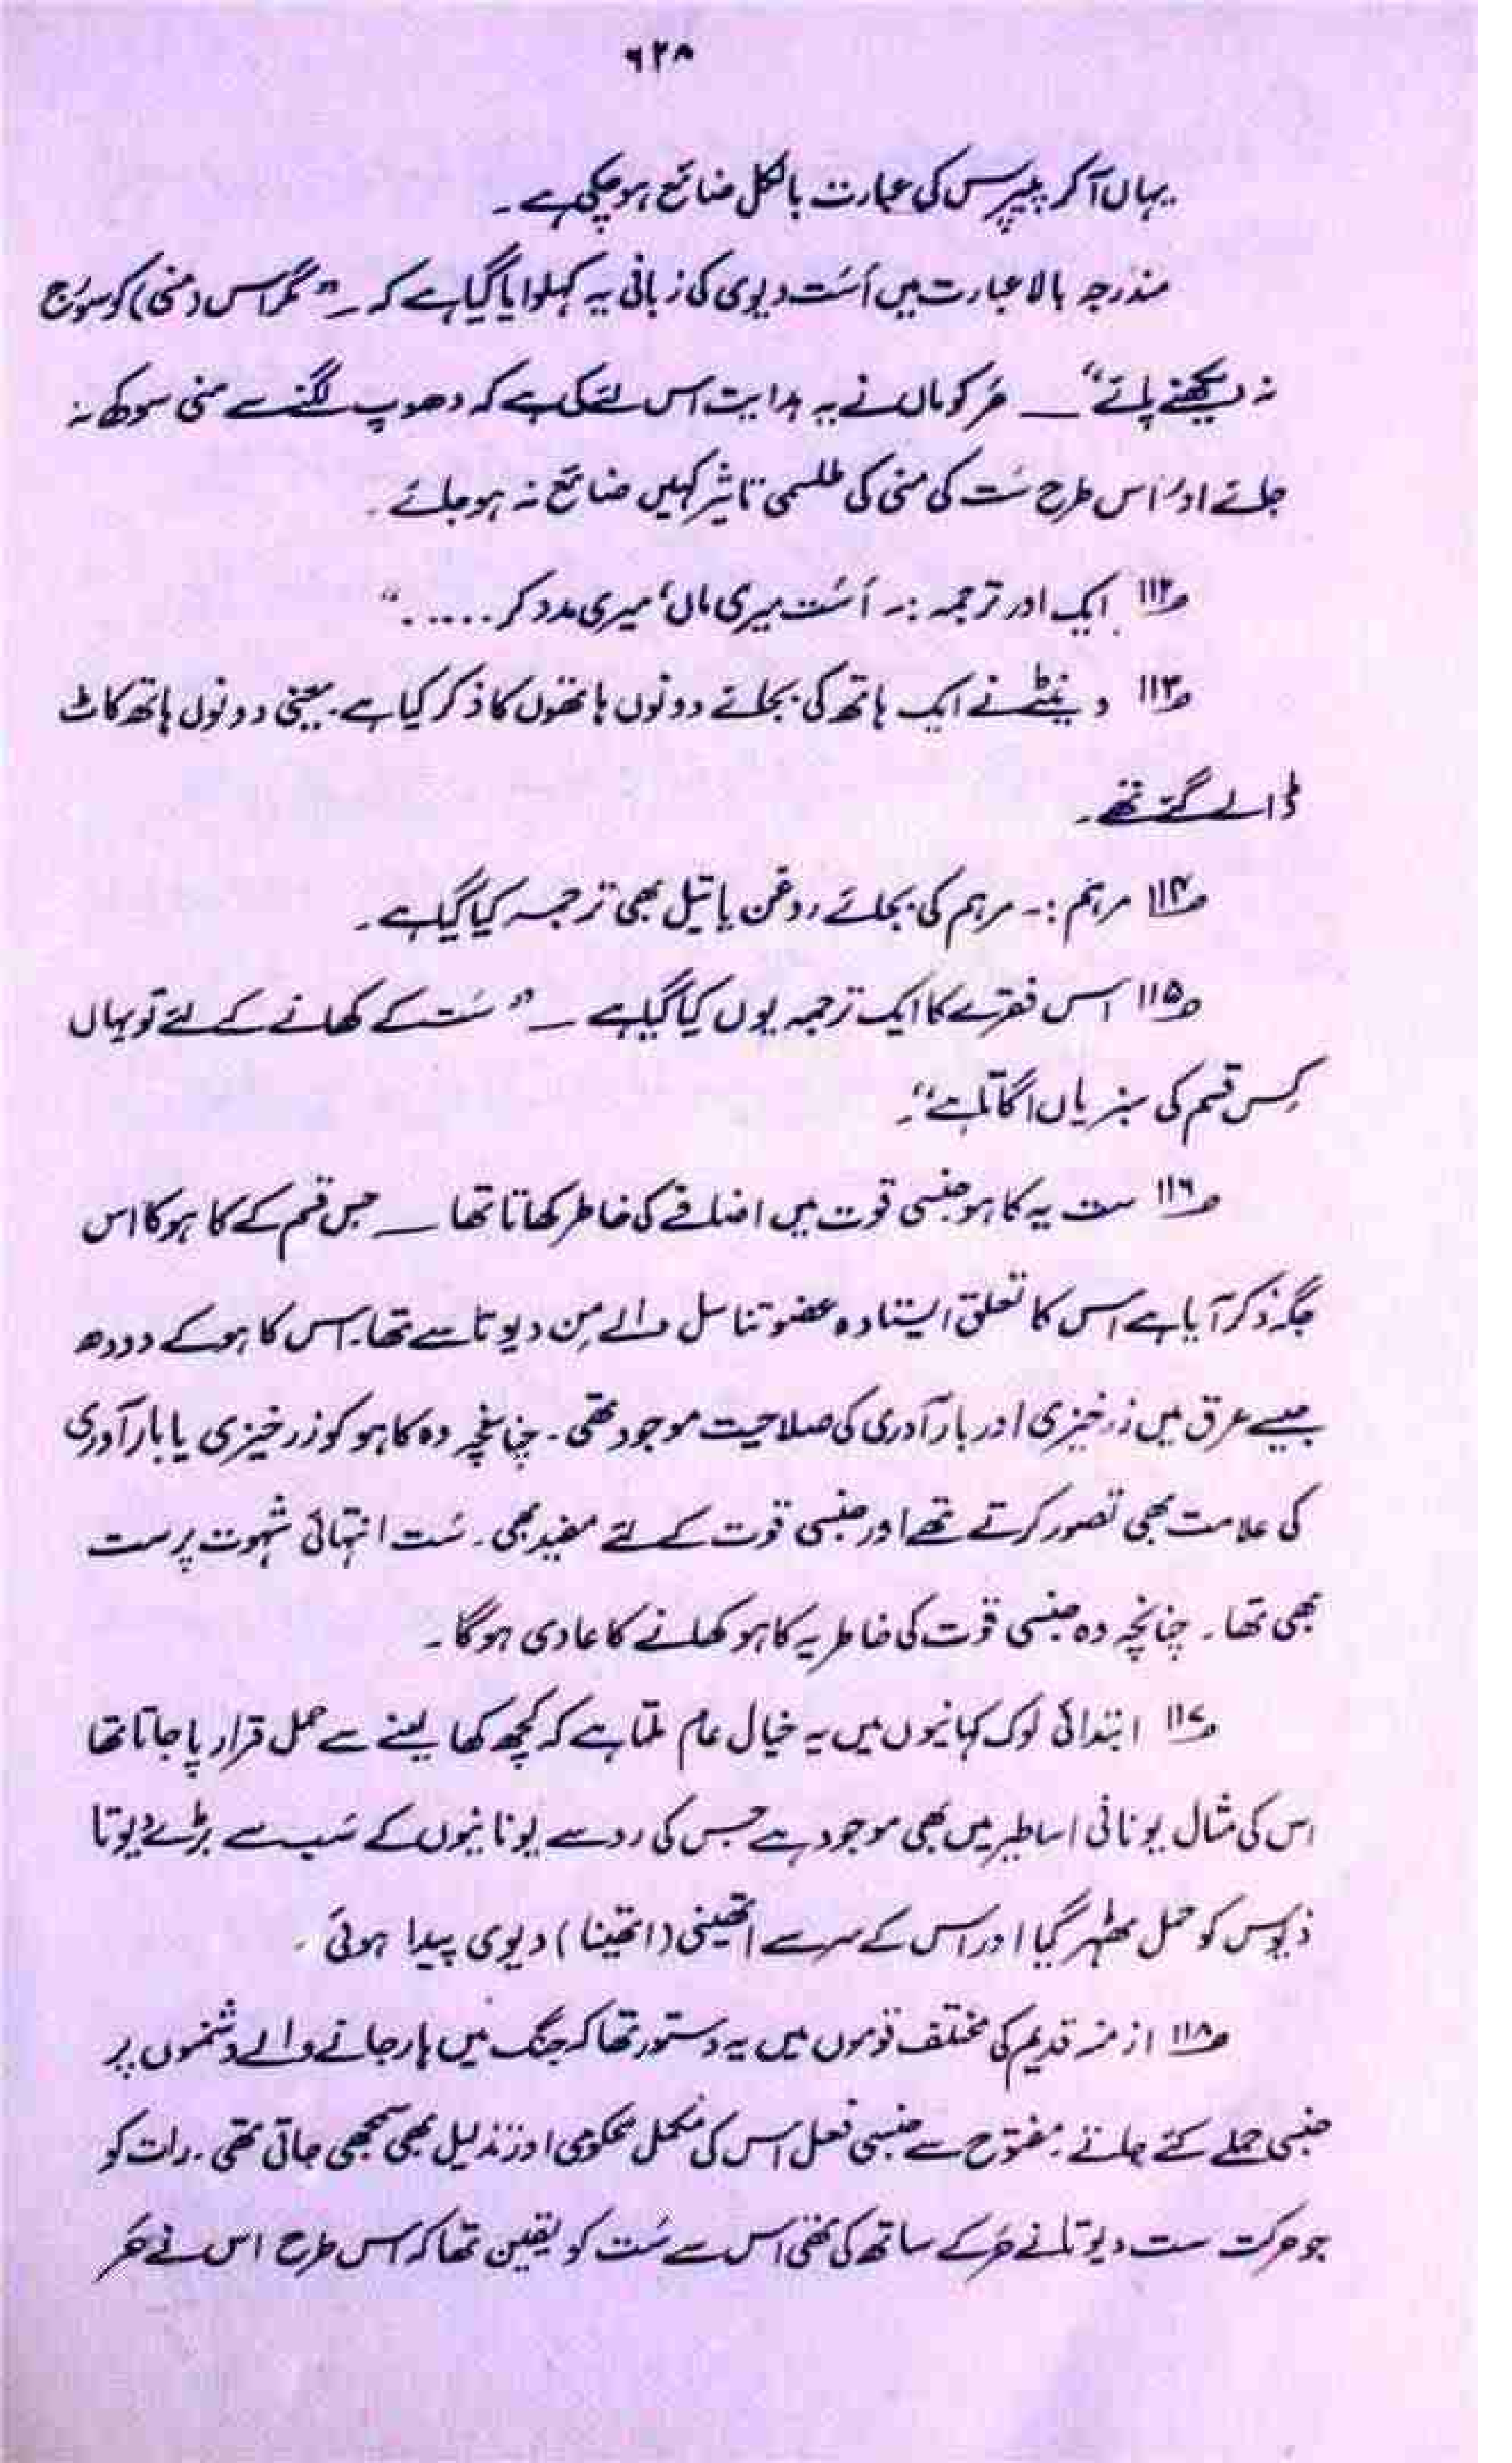 ۶۲۸
یہاں آ کر پیپرس کی عبارت بالکل ضائع ہو چکی ہے۔
مندرجہ بالا عبارت میں اَسَت دیوی کی زبانی یہ کہلوایا گیا ہے کہ ــ "مگر اس (منی) کو سورج
نہ دیکھنے پائے" ــ حَر کو ماں نے یہ ہدایت اس لئے کی ہے کہ دھوپ لگنے سے منی سوکھ نہ
جائے اور اس طرح سَت کی منی کی طلسمی تاثیر کہیں ضائع نہ ہو جائے۔
؎۱۱۲ ایک اور ترجمہ :۔ اَسَت میری ماں، میری مدد کر ....."
؎۱۱۳ وینٹے نے ایک ہاتھ کی بجائے دونوں ہاتھوں کا ذکر کیا ہے۔ یعنی دونوں ہاتھ کاٹ
ڈالے گئے تھے۔
؎۱۱۴ مرہم :۔ مرہم کی بجائے روغن یا تیل بھی ترجمہ کیا گیا ہے۔
؎۱۱۵ اس فقرے کا ایک ترجمہ یوں کیا گیا ہے ــ "سَت کے کھانے کے لئے تو یہاں
کِس قسم کی سبزیاں اگاتا ہے"۔
؎۱۱۶ ست یہ کاہو جنسی قوت میں اضافے کی خاطر کھاتا تھا ــ جس قسم کے کاہو کا اس
جگہ ذکر آیا ہے اس کا تعلق ایستادہ عضو تناسل والے مِن دیوتا سے تھا۔ اس کاہو کے دودھ
جیسے عرق میں زرخیزی اور بارآوری کی صلاحیت موجود تھی۔ چنانچہ وہ کاہو کو زرخیزی یا بارآوری
کی علامت بھی تصور کرتے تھے اور جنسی قوت کے لئے مفید بھی۔ سَت انتہائی شہوت پرست
بھی تھا۔ چنانچہ وہ جنسی قوت کی خاطر یہ کاہو کھانے کا عادی ہوگا۔
؎۱۱۷ ابتدائی لوک کہانیوں میں یہ خیال عام ملتا ہے کہ کچھ کھا لینے سے حمل قرار پا جاتا تھا
اس کی مثال یونانی اساطیر میں بھی موجود ہے جس کی رو سے یونانیوں کے سَب سے بڑے دیوتا
زیوس کو حمل ٹھہر گیا اور اس کے سر سے اتھینی (اتھینا) دیوی پیدا ہوئی۔
؎۱۱۸ ازمنہ قدیم کی مختلف قوموں میں یہ دستور تھا کہ جنگ میں ہار جانے والے دشمنوں پر
جنسی حملے کئے جاتے۔ مفتوح سے جنسی فعل اس کی مکمل محکومی اور تذلیل بھی سمجھی جاتی تھی۔ رات کو
جو حرکت ست دیوتا نے حَر کے ساتھ کی تھی اس سے سَت کو یقین تھا کہ اس طرح اس نے حَر